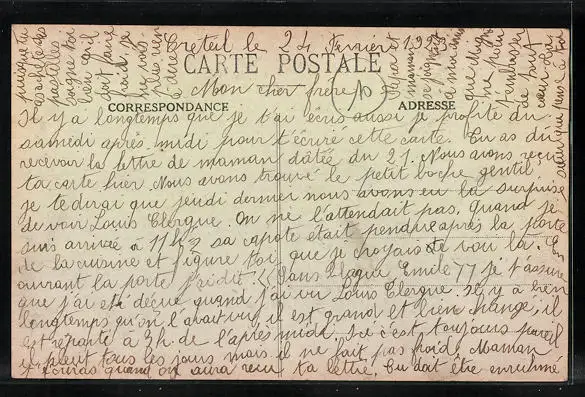 Creteil le 24 Février 192
CARTE POSTALE
Mon cher frère
CORRESPONDANCE
ADRESSE
Il y a longtemps que je t'ai écris aussi je profite du
samedi après-midi pour t'écrire cette carte. Tu as dû
recevoir la lettre de maman datée du 21. Nous avons reçu
ta carte hier. Nous avons trouvé le petit boche gentil.
je te dirai que jeudi dernier nous avons eu la surprise
de voir Louis Clergue. On ne l'attendait pas. Quand je
suis arrivée à 11h½ sa capote était pendue après la porte
de la cuisine et figure toi que je croyais te voir là. En
ouvrant la porte j'ai dit: Sans blague Emile je t'assure
que j'ai été déçue quand j'ai vu Louis Clergue. Il y a bien
longtemps qu'on l'avait vu il est grand et bien changé, il
est reparti à 3h. de l'après midi. Ici c'est toujours pareil
il pleut tous les jours mais il ne fait pas froid. Maman
quand on aura reçu ta lettre. Tu dois être enrhumé
puisque tu
pastilles
soigne toi
bien car il
doit faire
froid. je
ne vois
plus rien
à dire
Papa et
maman
se joignent
à moi
que dire
ne pour
t'embrasser
de tout
cœur. Ta
sœur qui pense à toi